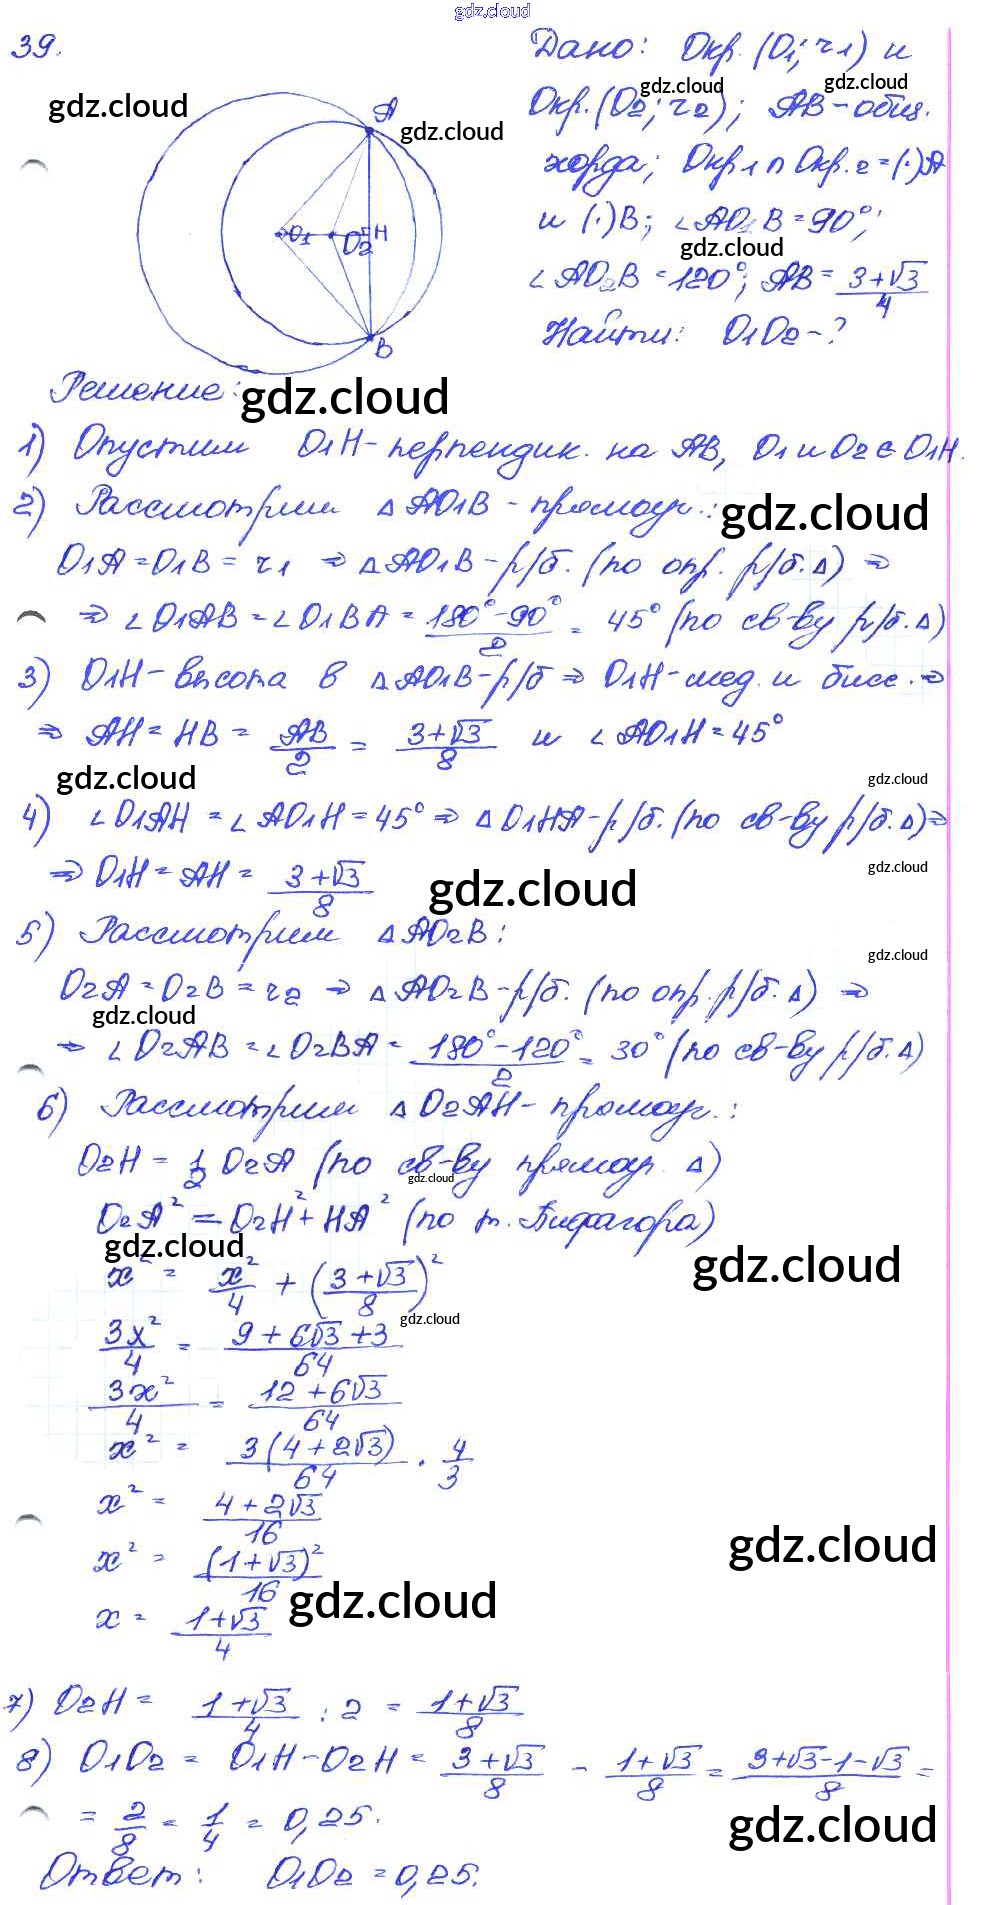 gdz.cloud
39.
Дано: Окр.(O1; r1) и
gdz.cloud gdz.cloud gdz.cloud
Окр.(O2; r2); AB - общ.
gdz.cloud
хорда; Окр.1 ∩ Окр.2 = (·)A
и (·)B; ∠AO1B = 90°;
gdz.cloud
∠AO2B = 120°; AB = (3+√3)/4
Найти: O1O2 - ?
A
O1 O2 H
B
Решение:
gdz.cloud
1) Опустим O1H - перпендик. на AB, O1 и O2 ∈ O1H.
2) Рассмотрим △AO1B - прямоуг.:
gdz.cloud
O1A = O1B = r1 ⇒ △AO1B - р/б. (по опр. р/б. △) ⇒
⇒ ∠O1AB = ∠O1BA = (180° - 90°)/2 = 45° (по св-ву р/б. △)
3) O1H - высота в △AO1B - р/б ⇒ O1H - мед. и бисс. ⇒
⇒ AH = HB = AB/2 = (3+√3)/8 и ∠AO1H = 45°
gdz.cloud gdz.cloud
4) ∠O1AH = ∠AO1H = 45° ⇒ △O1HA - р/б. (по св-ву р/б. △) ⇒
gdz.cloud
⇒ O1H = AH = (3+√3)/8
gdz.cloud
5) Рассмотрим △AO2B:
gdz.cloud
O2A = O2B = r2 ⇒ △AO2B - р/б. (по опр. р/б. △) ⇒
gdz.cloud
⇒ ∠O2AB = ∠O2BA = (180° - 120°)/2 = 30° (по св-ву р/б. △)
6) Рассмотрим △O2AH - прямоуг.:
O2H = 1/2 O2A (по св-ву прямоуг. △)
gdz.cloud
O2A² = O2H² + HA² (по т. Пифагора)
gdz.cloud gdz.cloud
x² = x²/4 + ((3+√3)/8)²
gdz.cloud
3x²/4 = (9+6√3+3)/64
3x²/4 = (12+6√3)/64
x² = 3(4+2√3)/64 · 4/3
x² = (4+2√3)/16
gdz.cloud
x² = (1+√3)²/16
gdz.cloud
x = (1+√3)/4
7) O2H = (1+√3)/4 : 2 = (1+√3)/8
8) O1O2 = O1H - O2H = (3+√3)/8 - (1+√3)/8 = (3+√3-1-√3)/8 =
gdz.cloud
= 2/8 = 1/4 = 0,25.
Ответ: O1O2 = 0,25.